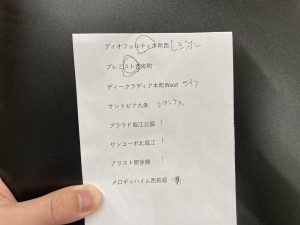 ディオフェルティ本町西 レジカレ
プレミスト西本町
ディークラディア本町West ライフ
サントピア九条
プラウド堀江公園 /
サンコーポ北堀江 /
アリスト肥後橋 /
メロディハイム西長堀